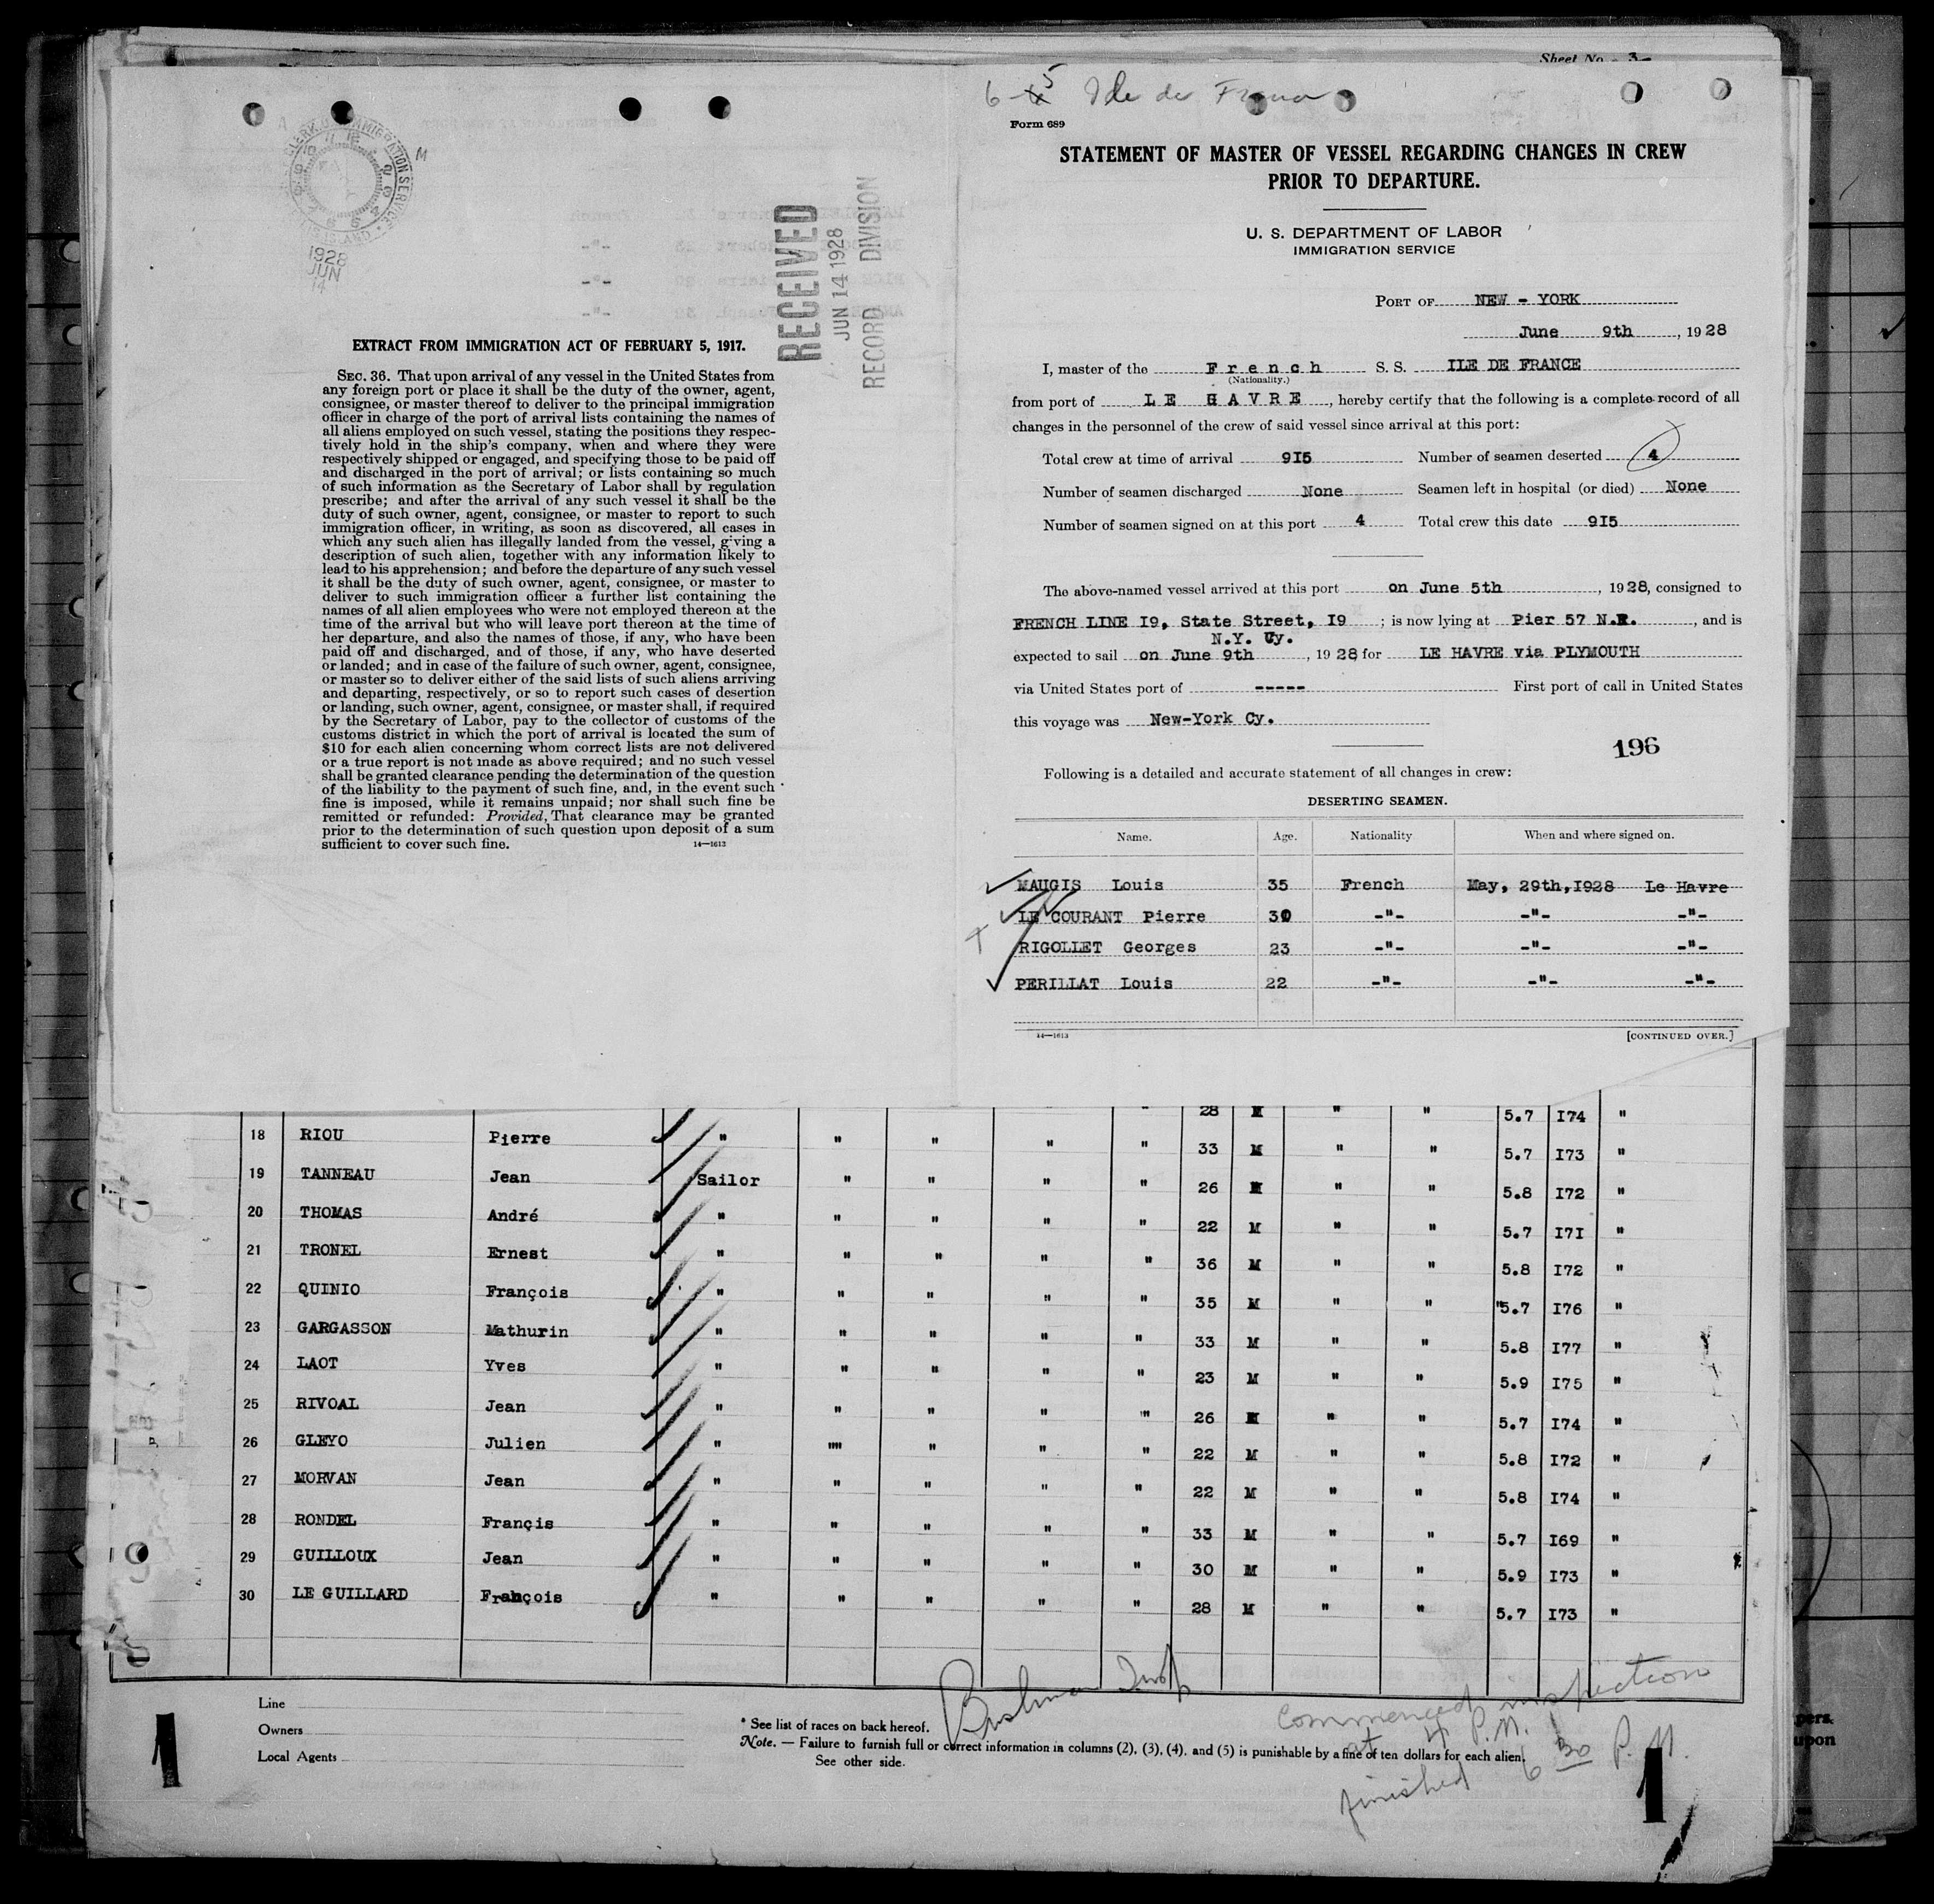 Sheet No. 3-
6-5 Ile de France
Form 689
STATEMENT OF MASTER OF VESSEL REGARDING CHANGES IN CREW
PRIOR TO DEPARTURE.
U. S. DEPARTMENT OF LABOR
IMMIGRATION SERVICE
PORT OF NEW - YORK
June 9th, 1928
I, master of the French S. S. ILE DE FRANCE
(Nationality.)
from port of LE HAVRE, hereby certify that the following is a complete record of all
changes in the personnel of the crew of said vessel since arrival at this port:
Total crew at time of arrival 9I5 Number of seamen deserted 4
Number of seamen discharged None Seamen left in hospital (or died) None
Number of seamen signed on at this port 4 Total crew this date 9I5
The above-named vessel arrived at this port on June 5th, 1928, consigned to
FRENCH LINE I9, State Street, I9 ; is now lying at Pier 57 N.R., and is
N.Y. Cy.
expected to sail on June 9th, 1928 for LE HAVRE via PLYMOUTH
via United States port of ----- First port of call in United States
this voyage was New-York Cy.
196
Following is a detailed and accurate statement of all changes in crew:
DESERTING SEAMEN.
Name. Age. Nationality When and where signed on.
MAUGIS Louis 35 French May, 29th, I928 Le Havre
LE COURANT Pierre 30 -"- -"- -"-
RIGOLLET Georges 23 -"- -"- -"-
PERILLAT Louis 22 -"- -"- -"-
14—1613 [CONTINUED OVER.]
1928
JUN
14
RECEIVED
JUN 14 1928
RECORD DIVISION
EXTRACT FROM IMMIGRATION ACT OF FEBRUARY 5, 1917.
SEC. 36. That upon arrival of any vessel in the United States from
any foreign port or place it shall be the duty of the owner, agent,
consignee, or master thereof to deliver to the principal immigration
officer in charge of the port of arrival lists containing the names of
all aliens employed on such vessel, stating the positions they respec-
tively hold in the ship's company, when and where they were
respectively shipped or engaged, and specifying those to be paid off
and discharged in the port of arrival; or lists containing so much
of such information as the Secretary of Labor shall by regulation
prescribe; and after the arrival of any such vessel it shall be the
duty of such owner, agent, consignee, or master to report to such
immigration officer, in writing, as soon as discovered, all cases in
which any such alien has illegally landed from the vessel, giving a
description of such alien, together with any information likely to
lead to his apprehension; and before the departure of any such vessel
it shall be the duty of such owner, agent, consignee, or master to
deliver to such immigration officer a further list containing the
names of all alien employees who were not employed thereon at the
time of the arrival but who will leave port thereon at the time of
her departure, and also the names of those, if any, who have been
paid off and discharged, and of those, if any, who have deserted
or landed; and in case of the failure of such owner, agent, consignee,
or master so to deliver either of the said lists of such aliens arriving
and departing, respectively, or so to report such cases of desertion
or landing, such owner, agent, consignee, or master shall, if required
by the Secretary of Labor, pay to the collector of customs of the
customs district in which the port of arrival is located the sum of
$10 for each alien concerning whom correct lists are not delivered
or a true report is not made as above required; and no such vessel
shall be granted clearance pending the determination of the question
of the liability to the payment of such fine, and, in the event such
fine is imposed, while it remains unpaid; nor shall such fine be
remitted or refunded: Provided, That clearance may be granted
prior to the determination of such question upon deposit of a sum
sufficient to cover such fine. 14—1613
28 M " " 5.7 I74 "
18 RIOU Pierre " " " " " 33 M " " 5.7 I73 "
19 TANNEAU Jean Sailor " " " " 26 M " " 5.8 I72 "
20 THOMAS André " " " " " 22 M " " 5.7 I7I "
21 TRONEL Ernest " " " " " 36 M " " 5.8 I72 "
22 QUINIO François " " " " " 35 M " " "5.7 I76 "
23 GARGASSON Mathurin " " " " " 33 M " " 5.8 I77 "
24 LAOT Yves " " " " " 23 M " " 5.9 I75 "
25 RIVOAL Jean " " " " " 26 M " " 5.7 I74 "
26 GLEYO Julien " "" " " " 22 M " " 5.8 I72 "
27 MORVAN Jean " " " " " 22 M " " 5.8 I74 "
28 RONDEL Françis " " " " " 33 M " " 5.7 I69 "
29 GUILLOUX Jean " " " " " 30 M " " 5.9 I73 "
30 LE GUILLARD François " " " " " 28 M " " 5.7 I73 "
Line
Owners
Local Agents
* See list of races on back hereof.
Note. — Failure to furnish full or correct information in columns (2), (3), (4), and (5) is punishable by a fine of ten dollars for each alien.
See other side.
commenced inspection
at 4 P.M.
finished 6 30 P.M.
1
1
pers.
upon